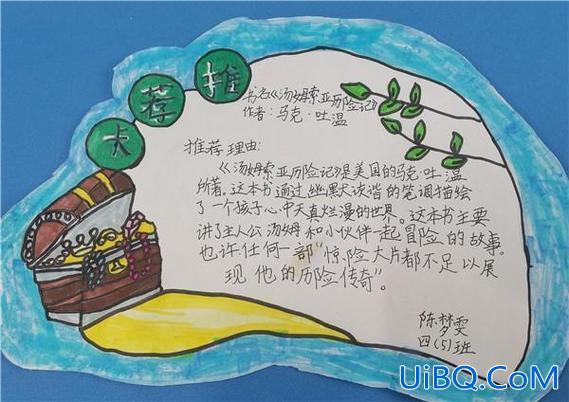 推荐卡
书名《汤姆索亚历险记》
作者：马克·吐温
推荐理由：
《汤姆索亚历险记》是美国的马克·吐温
所著。这本书通过幽默诙谐的笔调描绘
了一个孩子心中天真烂漫的世界。这本书主要
讲了主人公汤姆和小伙伴一起冒险的故事。
也许任何一部“惊险大片都不足以展
现他的历险传奇”。
陈梦雯
四(5)班
UiBQ.CoM